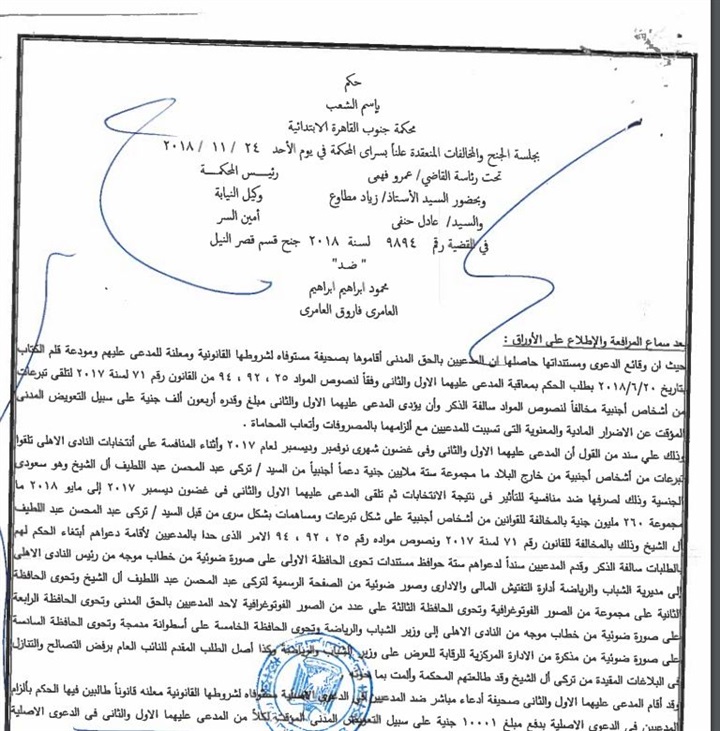 حكم
بإسم الشعب
محكمة جنوب القاهرة الابتدائية
بجلسة الجنح والمخالفات المنعقدة علناً بسراى المحكمة في يوم الأحد ٢٤ / ١١ / ٢٠١٨
تحت رئاسة القاضي/ عمرو فهمى رئيس المحكمة
وبحضور السيد الأستاذ/ زياد مطاوع وكيل النيابة
والسيد/ عادل حنفى أمين السر
في القضية رقم ٩٨٩٤ لسنة ٢٠١٨ جنح قسم قصر النيل
"ضد"
محمود ابراهيم ابراهيم
العامرى فاروق العامرى
بعد سماع المرافعة والإطلاع على الأوراق :
حيث ان وقائع الدعوى ومستنداتها حاصلها ان المدعيين بالحق المدنى أقاموها بصحيفة مستوفاه لشروطها القانونية ومعلنة للمدعى عليهم ومودعة قلم الكتاب
بتاريخ ٢٠١٨/٦/٢٠ بطلب الحكم بمعاقبة المدعى عليهما الاول والثانى وفقاً لنصوص المواد ٢٥ ، ٩٢ ، ٩٤ من القانون رقم ٧١ لسنة ٢٠١٧ لتلقى تبرعات
من أشخاص أجنبية مخالفاً لنصوص المواد سالفة الذكر وأن يؤدى المدعى عليهما الاول والثانى مبلغ وقدره أربعون ألف جنية على سبيل التعويض المدنى
المؤقت عن الاضرار المادية والمعنوية التى تسببت للمدعيين مع ألزامهما بالمصروفات وأتعاب المحاماة .
وذلك علي سند من القول أن المدعى عليهما الاول والثانى وفى غضون شهرى نوفمبر وديسمبر لعام ٢٠١٧ وأثناء المنافسة على أنتخابات النادى الاهلى تلقوا
تبرعات من أشخاص أجنبية من خارج البلاد ما مجموعة ستة ملايين جنية دعماً أجنبياً من السيد / تركى عبد المحسن عبد اللطيف أل الشيخ وهو سعودى
الجنسية وذلك لصرفها ضد منافسية للتأثير فى نتيجة الانتخابات ثم تلقى المدعى عليهما الاول والثانى فى غضون ديسمبر ٢٠١٧ إلى مايو ٢٠١٨ ما
مجموعة ٢٦٠ مليون جنية بالمخالفة للقوانين من أشخاص أجنبية على شكل تبرعات ومساهمات بشكل سرى من قبل السيد / تركى عبد المحسن عبد اللطيف
أل الشيخ وذلك بالمخالفة للقانون رقم ٧١ لسنة ٢٠١٧ ونصوص مواده رقم ٢٥ ، ٩٢ ، ٩٤ الامر الذى حدا بالمدعيين لأقامة دعواهم أبتغاء الحكم لهم
بالطلبات سالفة الذكر وقدم المدعيين سنداً لدعواهم ستة حوافظ مستندات تحوى الحافظة الاولى على صورة ضوئية من خطاب موجه من رئيس النادى الاهلى
إلى مديرية الشباب والرياضة أدارة التفتيش المالى والادارى وصور ضوئية من الصفحة الرسمية لتركى عبد المحسن عبد اللطيف أل الشيخ وتحوى الحافظة
الثانية على مجموعة من الصور الفوتوغرافية وتحوى الحافظة الثالثة على عدد من الصور الفوتوغرافية لاحد المدعيين بالحق المدنى وتحوى الحافظة الرابعة
على صورة ضوئية من خطاب موجه من النادى الاهلى إلى وزير الشباب والرياضة وتحوى الحافظة الخامسة على أسطوانة مدمجة وتحوى الحافظة السادسة
على صورة ضوئية من مذكرة من الادارة المركزية للرقابة للعرض على وزير الشباب والرياضة وكذا أصل الطلب المقدم للنائب العام برفض التصالح والتنازل
فى البلاغات المقيدة من تركى أل الشيخ وقد طالعتهم المحكمة وألمت بما حوته .
وقد أقام المدعى عليهما الاول والثانى صحيفة أدعاء مباشر ضد المدعيين فى الدعوى الاصلية مستوفاه لشروطها القانونية معلنه قانوناً طالبين فيها الحكم بألزام
المدعيين فى الدعوى الاصلية بدفع مبلغ ١٠٠٠١ جنية على سبيل التعويض المدنى المؤقت لكلاً من المدعى عليهما الاول والثانى فى الدعوى الاصلية